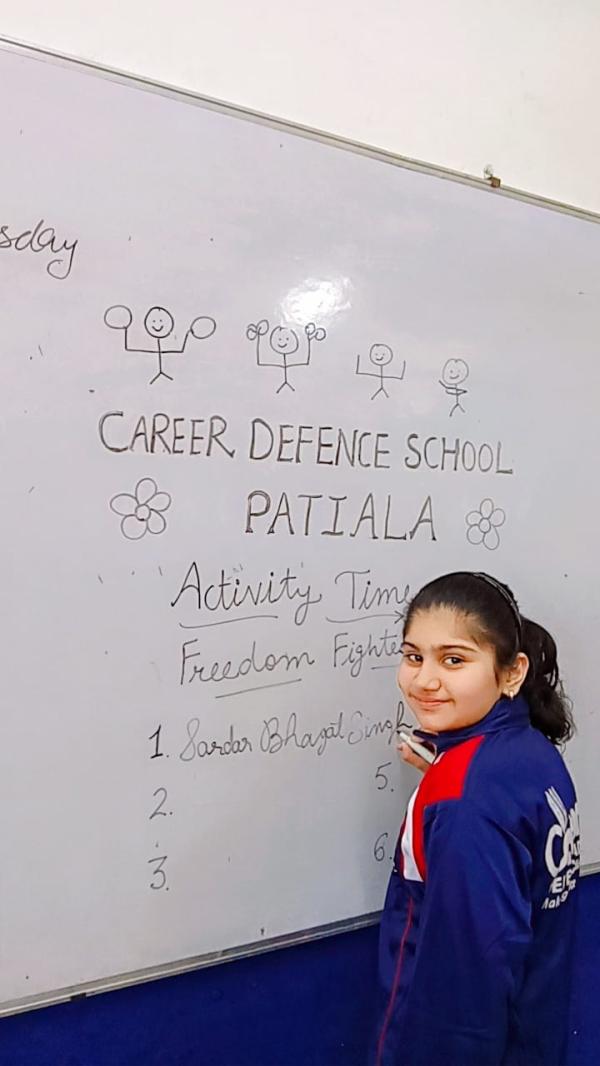 sday
CAREER DEFENCE SCHOOL
PATIALA
Activity Time
Freedom Fighte
1. Sardar Bhagat Singh
2.
3.
5.
6.